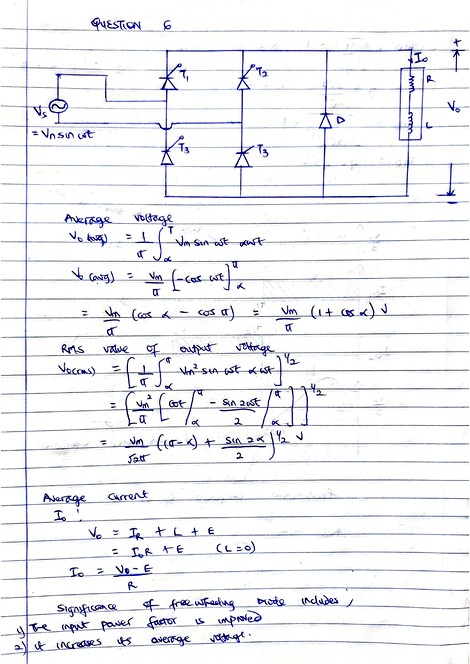 QUESTION 6
T1
T2
Io
+
R
Vs
D
Vo
= Vm sin wt
L
T3
T3
Average voltage
Vo (avg) = 1/π ∫α^π Vm sin wt dwt
Vo (avg) = Vm/π [-cos wt]α^π
= Vm/π (cos α - cos π) = Vm/π (1 + cos α) V
RMS value of output voltage
Vo(rms) = [1/π ∫α^π Vm² sin wt dwt]^1/2
= [Vm²/π [wt/α^π - sin 2wt/2 /α^π]]^1/2
= Vm/√2π ((π-α) + sin 2α/2)^1/2 V
Average current
Io :
Vo = IR + L + E
= IoR + E (L=0)
Io = Vo - E/R
Significance of freewheeling diode includes,
1) The input power factor is improved
2) it increases its average voltage.